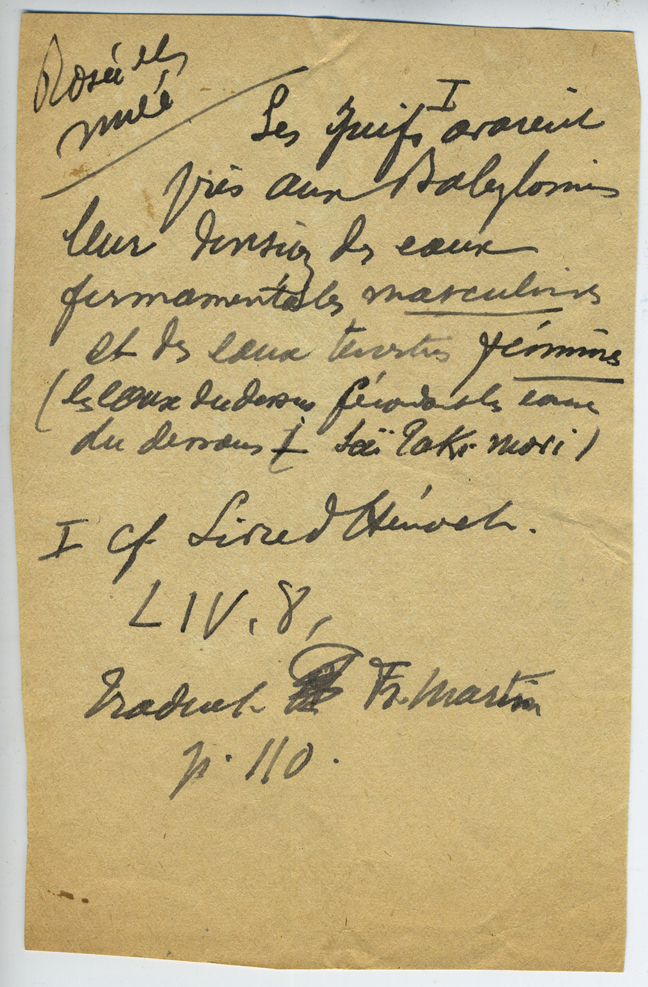 Rosée et
nuée
I
Les Juifs avaient
pris aux Babyloniens
leur division des eaux
firmamentales masculines
et des eaux terrestres féminines
(les eaux du dessus fécondant les eaux
du dessous I Mori)
I cf Livre d'Hénoch.
LIV, 8,
Traduct. Fr. Martin
p. 110.